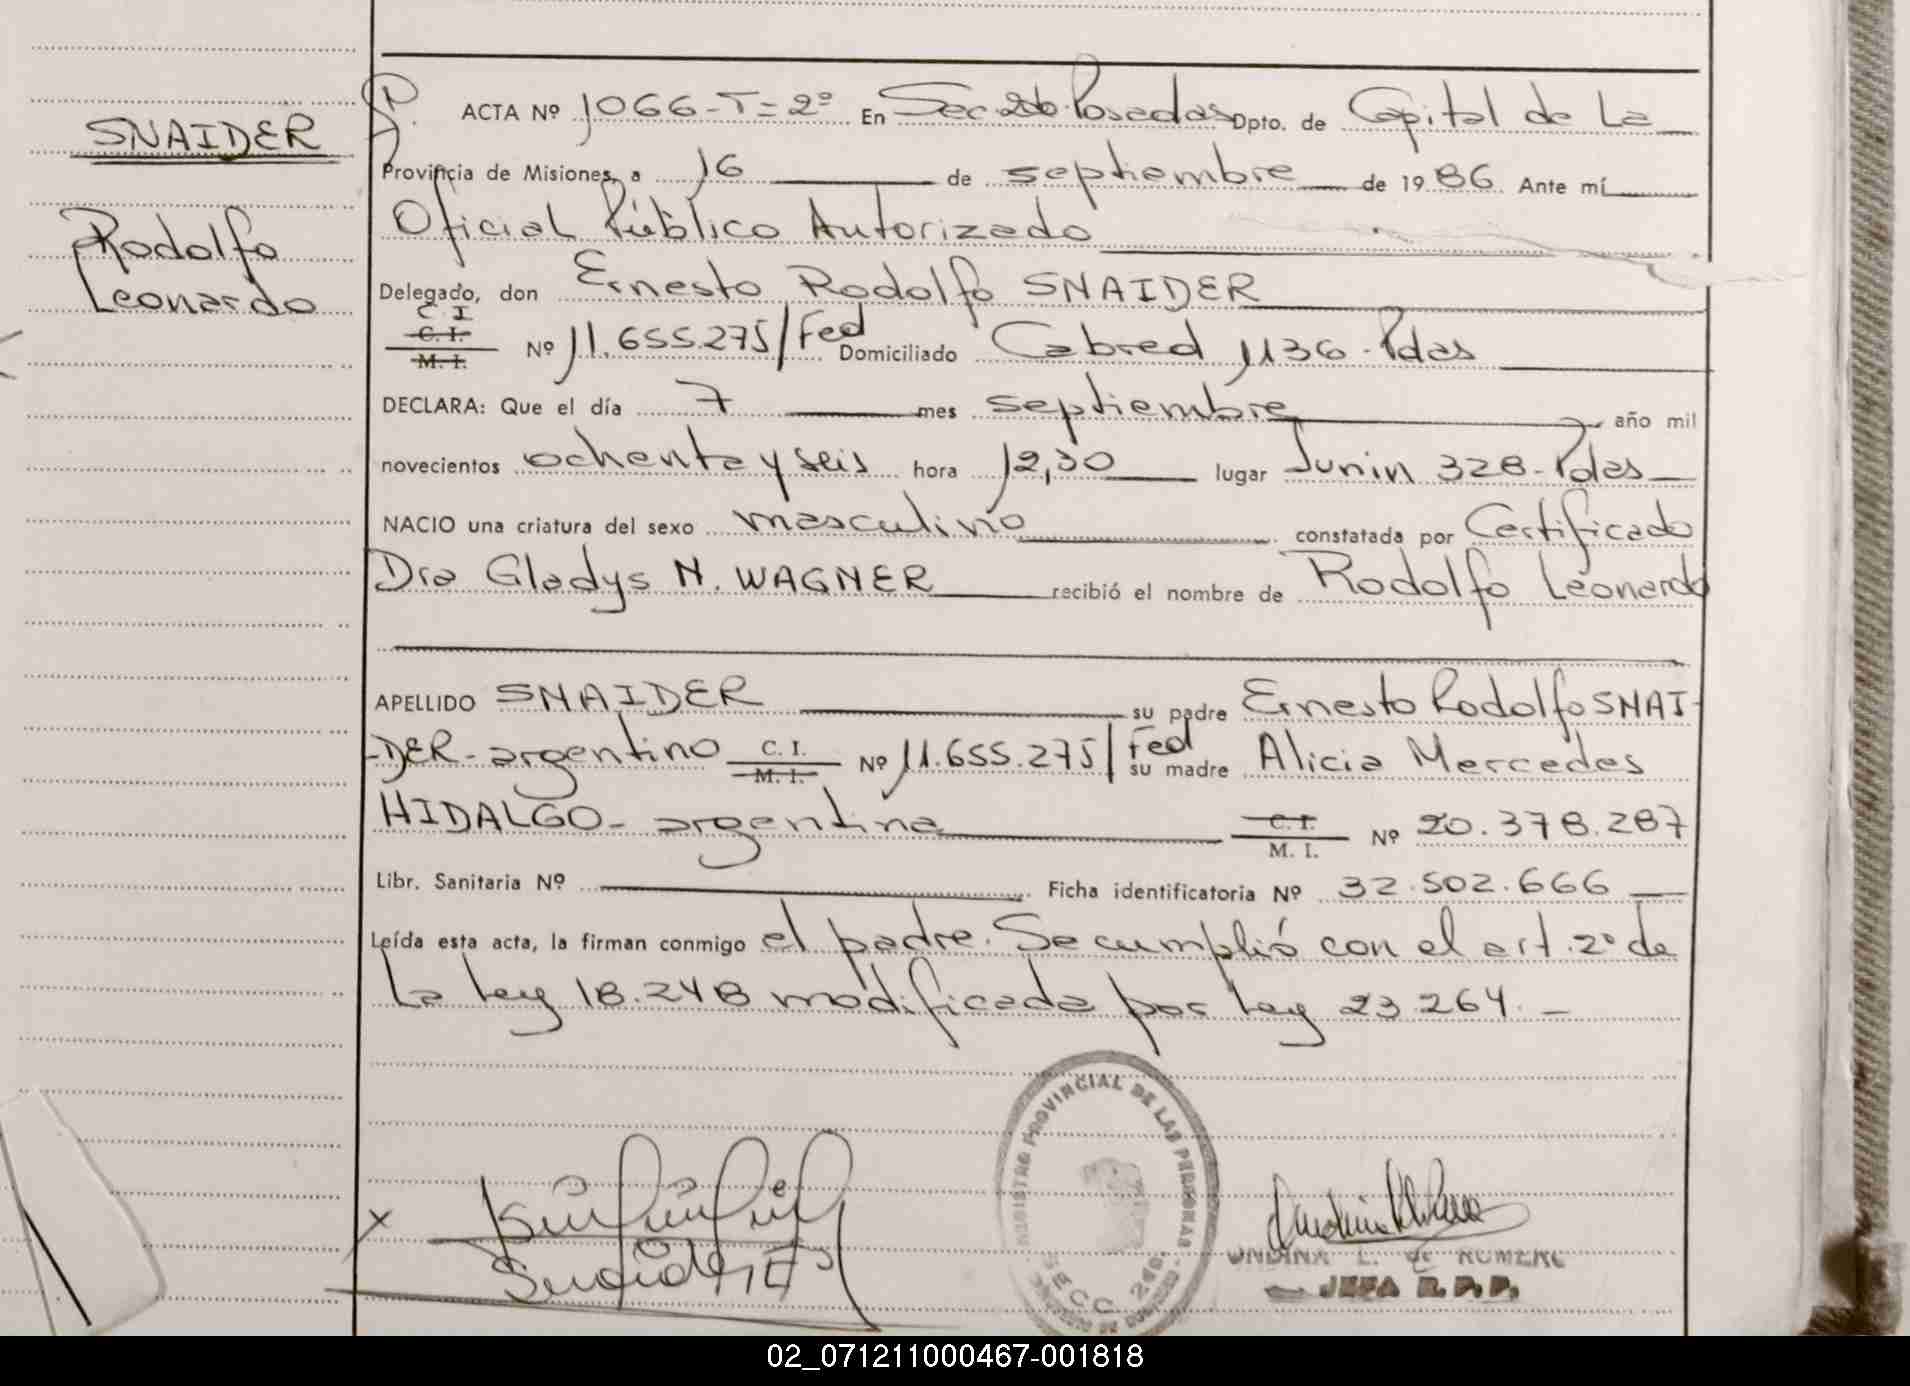 SNAIDER
Rodolfo
Leonardo
ACTA Nº 1066-T=2º En Sec 2db. Posadas Dpto. de Capital de La
Provincia de Misiones, a 16 de septiembre de 1986. Ante mí
Oficial Público Autorizado
Delegado, don Ernesto Rodolfo SNAIDER
C. I
C. I.
M. I.
Nº 11.655.275/Fed Domiciliado Cabred 1136-Pdas
DECLARA: Que el día 7 mes septiembre año mil
novecientos ochenta y seis hora 12,30 lugar Junin 328-Pdas
NACIO una criatura del sexo masculino constatada por Certificado
Dra Gladys N. WAGNER recibió el nombre de Rodolfo Leonardo
APELLIDO SNAIDER su padre Ernesto Rodolfo SNAI-
-DER-argentino C. I. M. I. Nº 11.655.275/Fed su madre Alicia Mercedes
HIDALGO-argentina C. I. M. I. Nº 20.378.287
Libr. Sanitaria Nº Ficha identificatoria Nº 32.502.666
Leída esta acta, la firman conmigo el padre. Se cumplió con el art. 2º de
La Ley 18.248 modificada por Ley 23.264.-
REGISTRO PROVINCIAL DE LAS PERSONAS
SECC. 2db.
x
UNDINA L. de ROMERO
JEFA R.P.P.
02_071211000467-001818